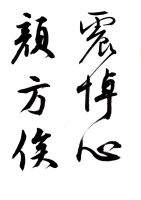 震悼心
顏方俟